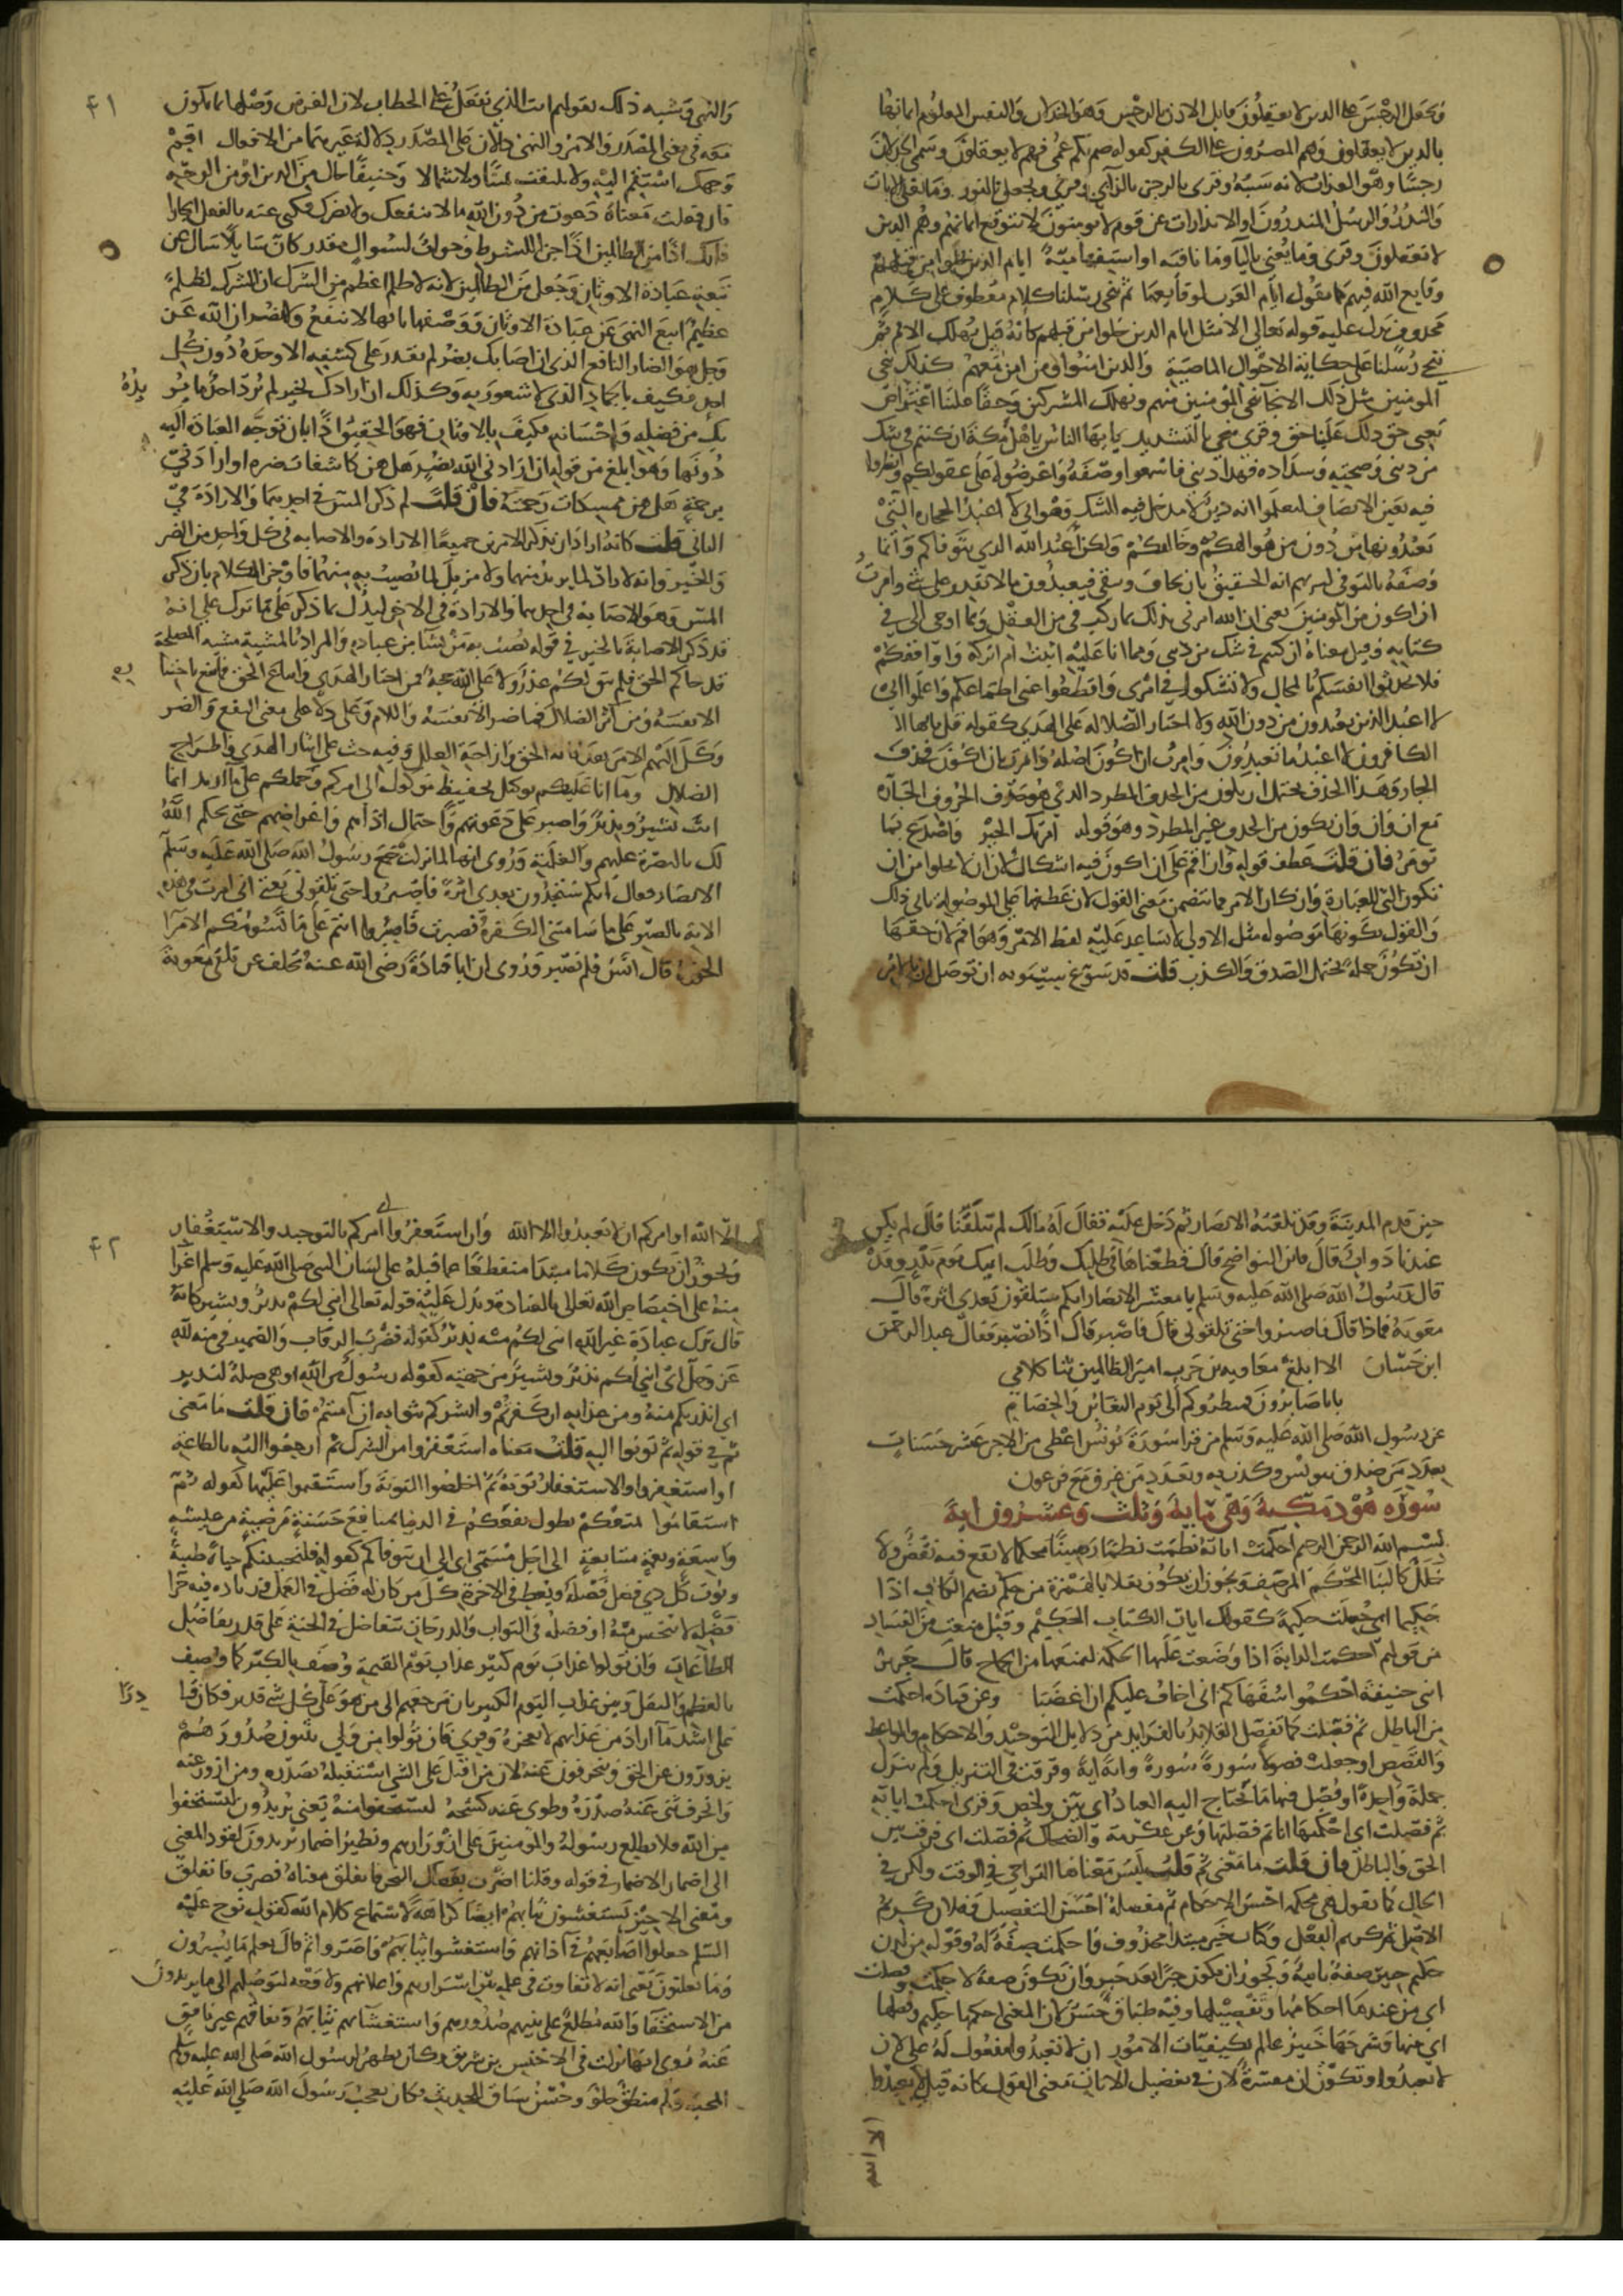 ونجعل الرجس على الذين لا يعقلون قابل الاذن بالرجس وهو الخذلان والنفس المعلوم ايمانها
بالذين لا يعقلون وهم المصرون على الكفر كقوله صم بكم عمي فهم لا يعقلون وسمى الخذلان
رجسا وهو العذاب لانه سببه وقرئ الرجز بالزاي وقرئ ونجعل بالنون وما تغني الايات
والنذر والرسل المنذرون او الانذارات عن قوم لا يومنون لا يتوقع ايمانهم وهم الذين
لا يعقلون وقرئ وما يغني بالياء وما نافيه او استفهاميه ايام الذين خلوا من قبلهم
وقايع الله فيهم كما يقول ايام العرب لوقايعها ثم ننجي رسلنا كلام معطوف على كلام
محذوف يدل عليه قوله تعالى الا مثل ايام الذين خلوا من قبلهم كانه قيل نهلك الامم ثم
ننجي رسلنا على حكاية الاحوال الماضية والذين امنوا ومن امن معهم كذلك ننجي
المومنين مثل ذلك الانجاء ننجي المومنين منهم ونهلك المشركين وحقا علينا اعتراض
يعني حق ذلك علينا حق وقرئ ننجي بالتشديد يا ايها الناس يا اهل مكة ان كنتم في شك
من ديني وصحته وسداده فهذا ديني فاسمعوا وصفه واعرضوه على عقولكم وانظروا
فيه بعين الانصاف لتعلموا انه دين لا مدخل فيه للشك وهو اني لا اعبد الحجارة التي
تعبدونها من دون من هو الهكم وخالقكم ولكن اعبد الله الذي يتوفاكم وانما
وصفه بالتوفي ليريهم انه الحقيق بان يخاف ويتقى فيعبدون ما لا يقدر على شي وامرت
ان اكون من المومنين يعني ان الله امرني بذلك بما ركب في من العقل وبما اوحى الي في
كتابه وقيل معناه ان كنتم في شك من ديني ومما انا عليه اثبت ام اتركه واوافقكم
فلا تحدثوا انفسكم بالمحال ولا تشكوا في امري واقطعوا عني اطماعكم واعلموا اني
لا اعبد الذين تعبدون من دون الله ولا اختار الضلاله على الهدى كقوله قل يا ايها
الكافرون لا اعبد ما تعبدون وامرت ان اكون اصله وامرت بان اكون فحذف
الجار وهذا الحذف يحتمل ان يكون من الحذف المطرد الذي هو حذف الحروف الجارة
مع ان وان وان يكون من الحذف غير المطرد وهو قوله امرتك الخير فاصدع بما
تومر فان قلت عطف قوله وان اقم على ان اكون فيه اشكال لان ان لا تخلوا من ان
تكون التي للعبارة وان كان الامر مما يتضمن معنى القول لان عطفها على الموصولة يابى ذلك
والقول بكونها موصوله مثل الاولى لا يساعد عليه لفظ الامر وهو اقم لان حقها
ان تكون جملة تحتمل الصدق والكذب قلت قد سوغ سيبويه ان توصل ان بالامر
٤١
والنهي وشبه ذلك بقولهم انت الذي تفعل على الخطاب لان الغرض وصلها بما تكون
معه في معنى المصدر والامر والنهي دالان على المصدر دلالة غيرهما من الافعال اقم
وجهك استقم اليه ولا تلتفت يمينا ولا شمالا وحنيفا حال من الدين او من الوجه
فان فعلت معناه دعوت من دون الله ما لا ينفعك ولا يضرك فكنى عنه بالفعل ايجازا
فانك اذا من الظالمين اذا جزا للشرط وجواب لسوال مقدر كان سايلا سال عن
تبعة عبادة الاوثان وجعل من الظالمين لانه لا ظلم اعظم من الشرك ان الشرك لظلم
عظيم اتبع النهي عن عبادة الاوثان ووصفها بانها لا تنفع ولا تضر ان الله عز
وجل هو الضار النافع الذي ان اصابك بضر لم يقدر على كشفه الا وحده دون كل
احد فكيف بالجماد الذي لا شعور به وكذلك ان ارادك بخير لم يرد احد ما يريده
بك من فضله واحسانه فكيف بالاوثان فهو الحقيق اذا بان توجه العبادة اليه
دونها وهو ابلغ من قوله ان ارادني الله بضر هل هن كاشفات ضره او ارادني
برحمة هل هن ممسكات رحمته فان قلت لم ذكر المس في احدهما والارادة في
الثاني قلت كانه اراد ان يذكر الامرين جميعا الارادة والاصابه في كل واحد من الضر
والخير وانه لا راد لما يريد منهما ولا مزيل لما يصيب به منهما فاوجز الكلام بان ذكر
المس وهو الاصابة في احدهما والارادة في الاخر ليدل بما ذكر على ما ترك على انه
قد ذكر الاصابة بالخير في قوله يصيب به من يشا من عباده والمراد بالمشية مشية المصلحة
قد جاكم الحق فلم يبق لكم عذر ولا على الله حجة فمن اختار الهدى واتباع الحق فما نفع باختياره
الا نفسه ومن آثر الضلال فما ضر الا نفسه واللام وعلى دلا على معنى النفع والضر
وكل اليهم الامر بعد ابانة الحق وازاحة العلل وفيه حث على ايثار الهدى واطراح
الضلال وما انا عليكم بوكيل بحفيظ موكول الى امركم وحملكم على ما اريد انما
انا بشير ونذير واصبر على دعوتهم واحتمال اذاهم واعراضهم حتى يحكم الله
لك بالنصرة عليهم والغلبة وروي انها لما نزلت جمع رسول الله صلى الله عليه وسلم
الانصار فقال انكم ستجدون بعدي اثرة فاصبروا حتى تلقوني يعني اني امرت في هذه
الاية بالصبر على ما سامتني الكفرة فصبرت فاصبروا انتم على ما تسومكم الامرا
الجورة قال انس فلم نصبر وروي ان ابا قتادة رضي الله عنه تخلف عن تلقي معوية
حين قدم المدينة وقد تلقته الانصار ثم دخل عليه فقال له مالك لم تتلقنا قال لم يكن
عندنا دواب قال فاين النواضح قال قطعناها في طلبك وطلب ابيك يوم بدر وقد
قال رسول الله صلى الله عليه وسلم يا معشر الانصار انكم ستلقون بعدي اثرة قال
معوية فماذا قال قال فاصبروا حتى تلقوني قال فاصبر قال اذا نصبر فقال عبد الرحمن
ابن حسان الا ابلغ معاوية بن حرب امير الظالمين نثا كلامي
بانا صابرون ومنظروكم الى يوم التغابن والخصام
عن رسول الله صلى الله عليه وسلم من قرا سورة يونس اعطي من الاجر عشر حسنات
بعدد من صدق بيونس وكذب به وبعدد من غرق مع فرعون
سورة هود مكية وهي ماية وثلث وعشرون اية
بسم الله الرحمن الرحيم احكمت اياته نظمت نظما رصينا محكما لا يقع فيه نقض ولا
خلل كالبنا المحكم المرصف ويجوز ان يكون نقلا بالهمزة من حكم بضم الكاف اذا صار
حكيما اي جعلت حكيمة كقولك ايات الكتاب الحكيم وقيل منعت من الفساد
من قولهم احكمت الدابة اذا وضعت عليها الحكمة لتمنعها من الجماح قال جرير
ابني حنيفة احكموا سفهاكم اني اخاف عليكم ان اغضبا وعن قتادة احكمت
من الباطل ثم فصلت كما تفصل القلايد بالفرايد من دلايل التوحيد والاحكام والمواعظ
والقصص او جعلت فصولا سورة سورة واية اية وفرقت في التنزيل ولم تنزل
جملة واحدة او فصل فيها ما يحتاج اليه العباد اي بين ولخص وقرئ احكمت اياته
ثم فصلت اي احكمتها انا ثم فصلتها وعن عكرمة والضحاك ثم فصلت اي فرقت بين
الحق والباطل فان قلت ما معنى ثم قلت ليس معناها التراخي في الوقت ولكن في
الحال كما تقول هي محكمة احسن الاحكام ثم مفصلة احسن التفصيل وفلان كريم
الاصل ثم كريم الفعل وكتاب خبر مبتدا محذوف واحكمت صفة له وقوله من لدن
حكيم خبير صفة ثانية ويجوز ان يكون خبرا بعد خبر وان تكون صلة لاحكمت وفصلت
اي من عنده احكامها وتفصيلها وفيه طباق حسن لان المعنى احكمها حكيم وفصلها
اي بينها وشرحها خبير عالم بكيفيات الامور ان لا تعبدوا مفعول له على لان
لا تعبدوا او تكون ان مفسرة لان في تفصيل الايات معنى القول كانه قيل لا تعبدوا
الا الله
٤٢
الا الله او امركم ان لا تعبدوا الا الله وان استغفروا اي امركم بالتوحيد والاستغفار
ويجوز ان يكون كلاما مبتدا منقطعا عما قبله على لسان النبي صلى الله عليه وسلم اغرا
منه على اختصاص الله تعالى بالعبادة ويدل عليه قوله تعالى انني لكم منه نذير وبشير كانه
قال ترك عبادة غير الله انني لكم منه نذير كقوله فضرب الرقاب والضمير في منه لله
عز وجل اي انني لكم نذير وبشير من جهته كقوله رسول من الله او هي صلة لنذير
اي انذركم منه ومن عذابه ان كفرتم وابشركم بثوابه ان امنتم فان قلت ما معنى
ثم في قوله ثم توبوا اليه قلت معناه استغفروا من الشرك ثم ارجعوا اليه بالطاعة
او استغفروا والاستغفار توبة ثم اخلصوا التوبة واستقيموا عليها كقوله ثم
استقاموا يمتعكم يطول نفعكم في الدنيا بمنافع حسنة مرضية من عيشة
واسعة ونعمة متتابعة الى اجل مسمى اي الى ان يتوفاكم كقوله فلنحيينه حياة طيبة
ويؤت كل ذي فضل فضله ويعط في الاخرة كل من كان له فضل في العمل وزيادة فيه جزا
فضله لا يبخس منه او فضله في الثواب والدرجات تتفاضل في الجنة على قدر تفاضل
الطاعات وان تولوا عذاب يوم كبير عذاب يوم القيمة وصف بالكبر كما وصف
بالعظم والثقل وبين عذاب اليوم الكبير بان مرجعهم الى من هو على كل شي قدير فكان قادرا
على اشد ما اراد من عذابهم لا يعجزه وقرئ وان تولوا من ولي يثنون صدورهم
يزورون عن الحق وينحرفون عنه لان من اقبل على الشي استقبله بصدره ومن ازور عنه
وانحرف ثنى عنه صدره وطوى عنه كشحه ليستخفوا منه يعني يريدون ليستخفوا
من الله فلا يطلع رسوله والمومنين على ازورارهم ونظير اضمار يريدون لقود المعنى
الى اضماره الاضمار في قوله وقلنا اضرب بعصاك البحر فانفلق معناه فضرب فانفلق
ومعنى الا حين يستغشون ثيابهم ايضا كراهة لاستماع كلام الله كقول نوح عليه
السلم جعلوا اصابعهم في آذانهم واستغشوا ثيابهم واصروا ثم قال يعلم ما يسرون
وما يعلنون يعني انه لا تفاوت في علمه بين اسرارهم واعلانهم ولا وجه لتوصلهم الى ما يريدون
من الاستخفا والله مطلع على ثنيهم صدورهم واستغشائهم ثيابهم ونفاقهم غير نافق
عنده روي انها نزلت في الاخنس بن شريق وكان يظهر لرسول الله صلى الله عليه وسلم
المحبة وله منطق حلو وحسن سياق للحديث وكان يعجب رسول الله صلى الله عليه